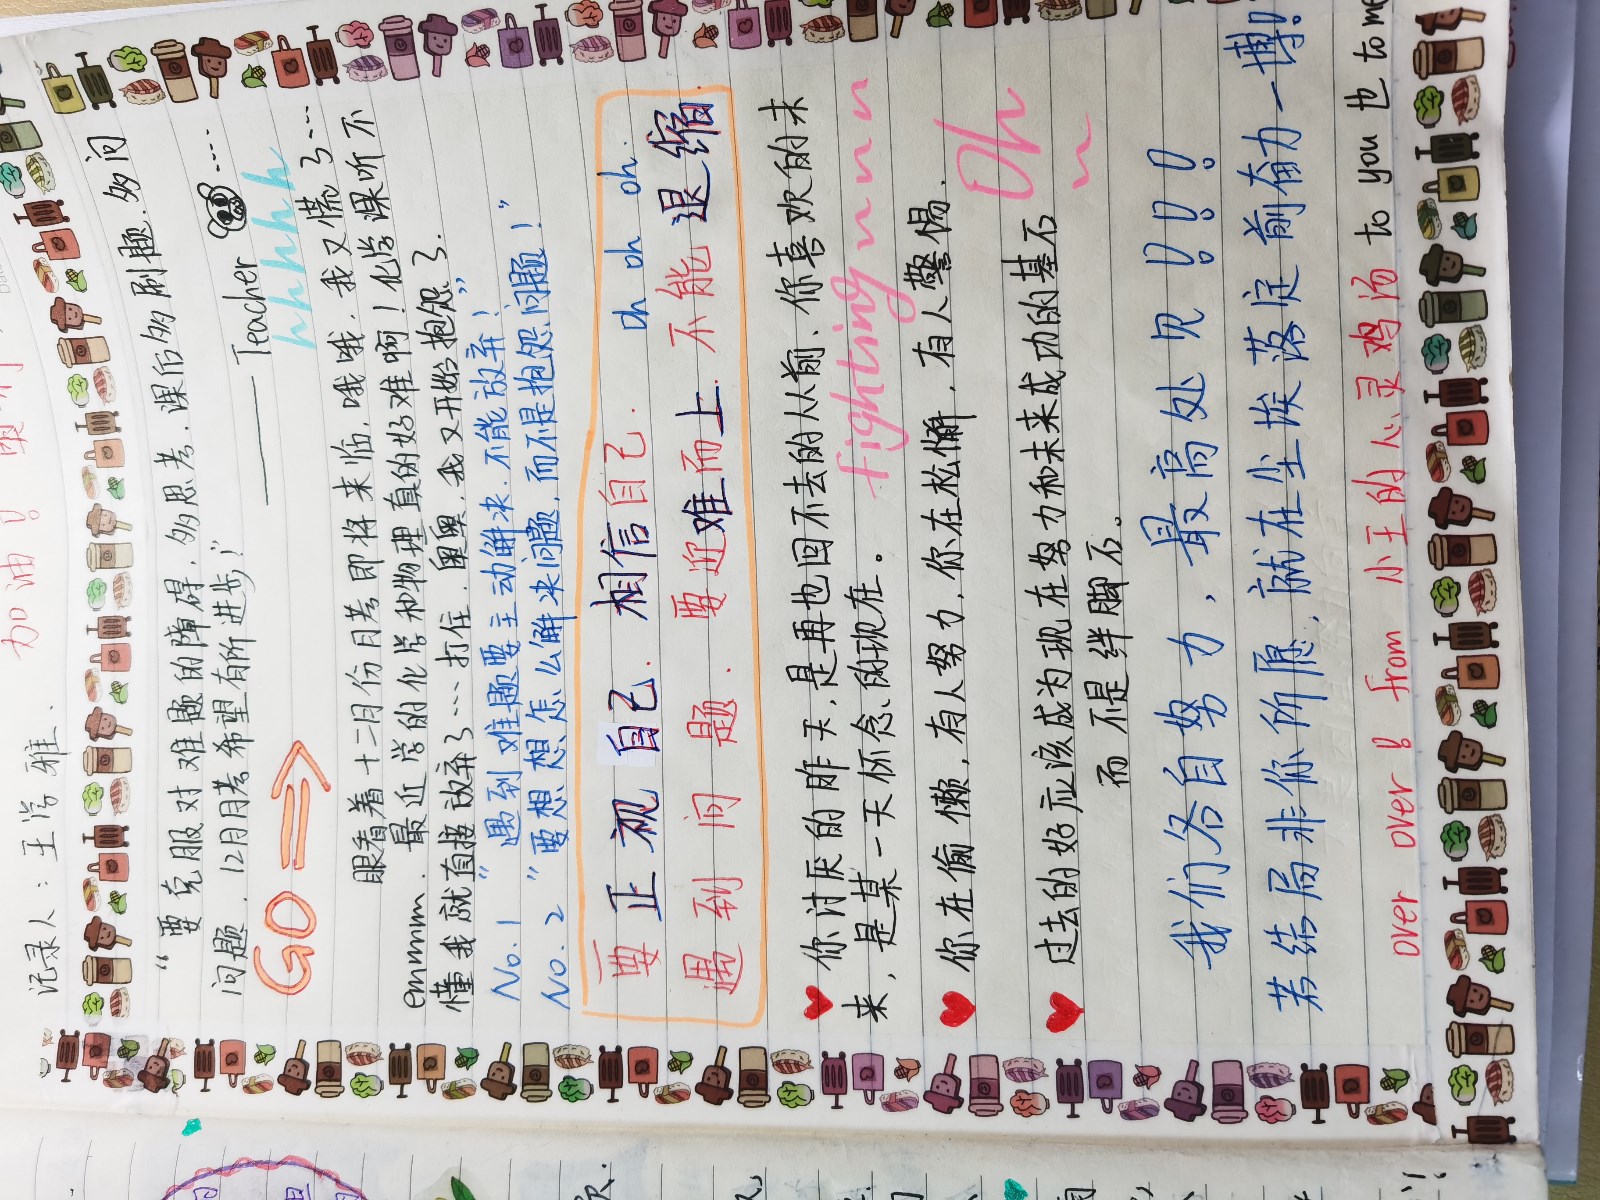 加油！
记录人：王学雅.
“要克服对难题的障碍，多思考，课后多刷题.多问
问题，12月月考希望有所进步！”
——Teacher ....
hhhhh
GO
眼看着十二月份月考即将来临，哦哦，我又慌了....
emmmm. 最近学的化学和物理真的好难啊！化学课听不
懂我就直接放弃了.... 打住，奥奥，我又开始抱怨了.
No.1 “遇到难题要主动解决，不能放弃！”
No.2 “要想想怎么解决问题，而不是抱怨问题！”
要正视自己. 相信自己. oh oh oh oh.
遇到问题. 要迎难而上. 不能退缩
你讨厌的昨天，是再也回不去的从前、你喜欢的未
来，是某一天怀念的现在。
fighting
你在偷懒，有人努力，你在松懈，有人警惕.
Oh
过去的好应该成为现在努力和未来成功的基石
而不是绊脚石。
我们各自努力，最高处见！！！！
若结局非你所愿，就在尘埃落定前奋力一搏！
over over！ from 小王的心灵鸡汤 to you 也 to me